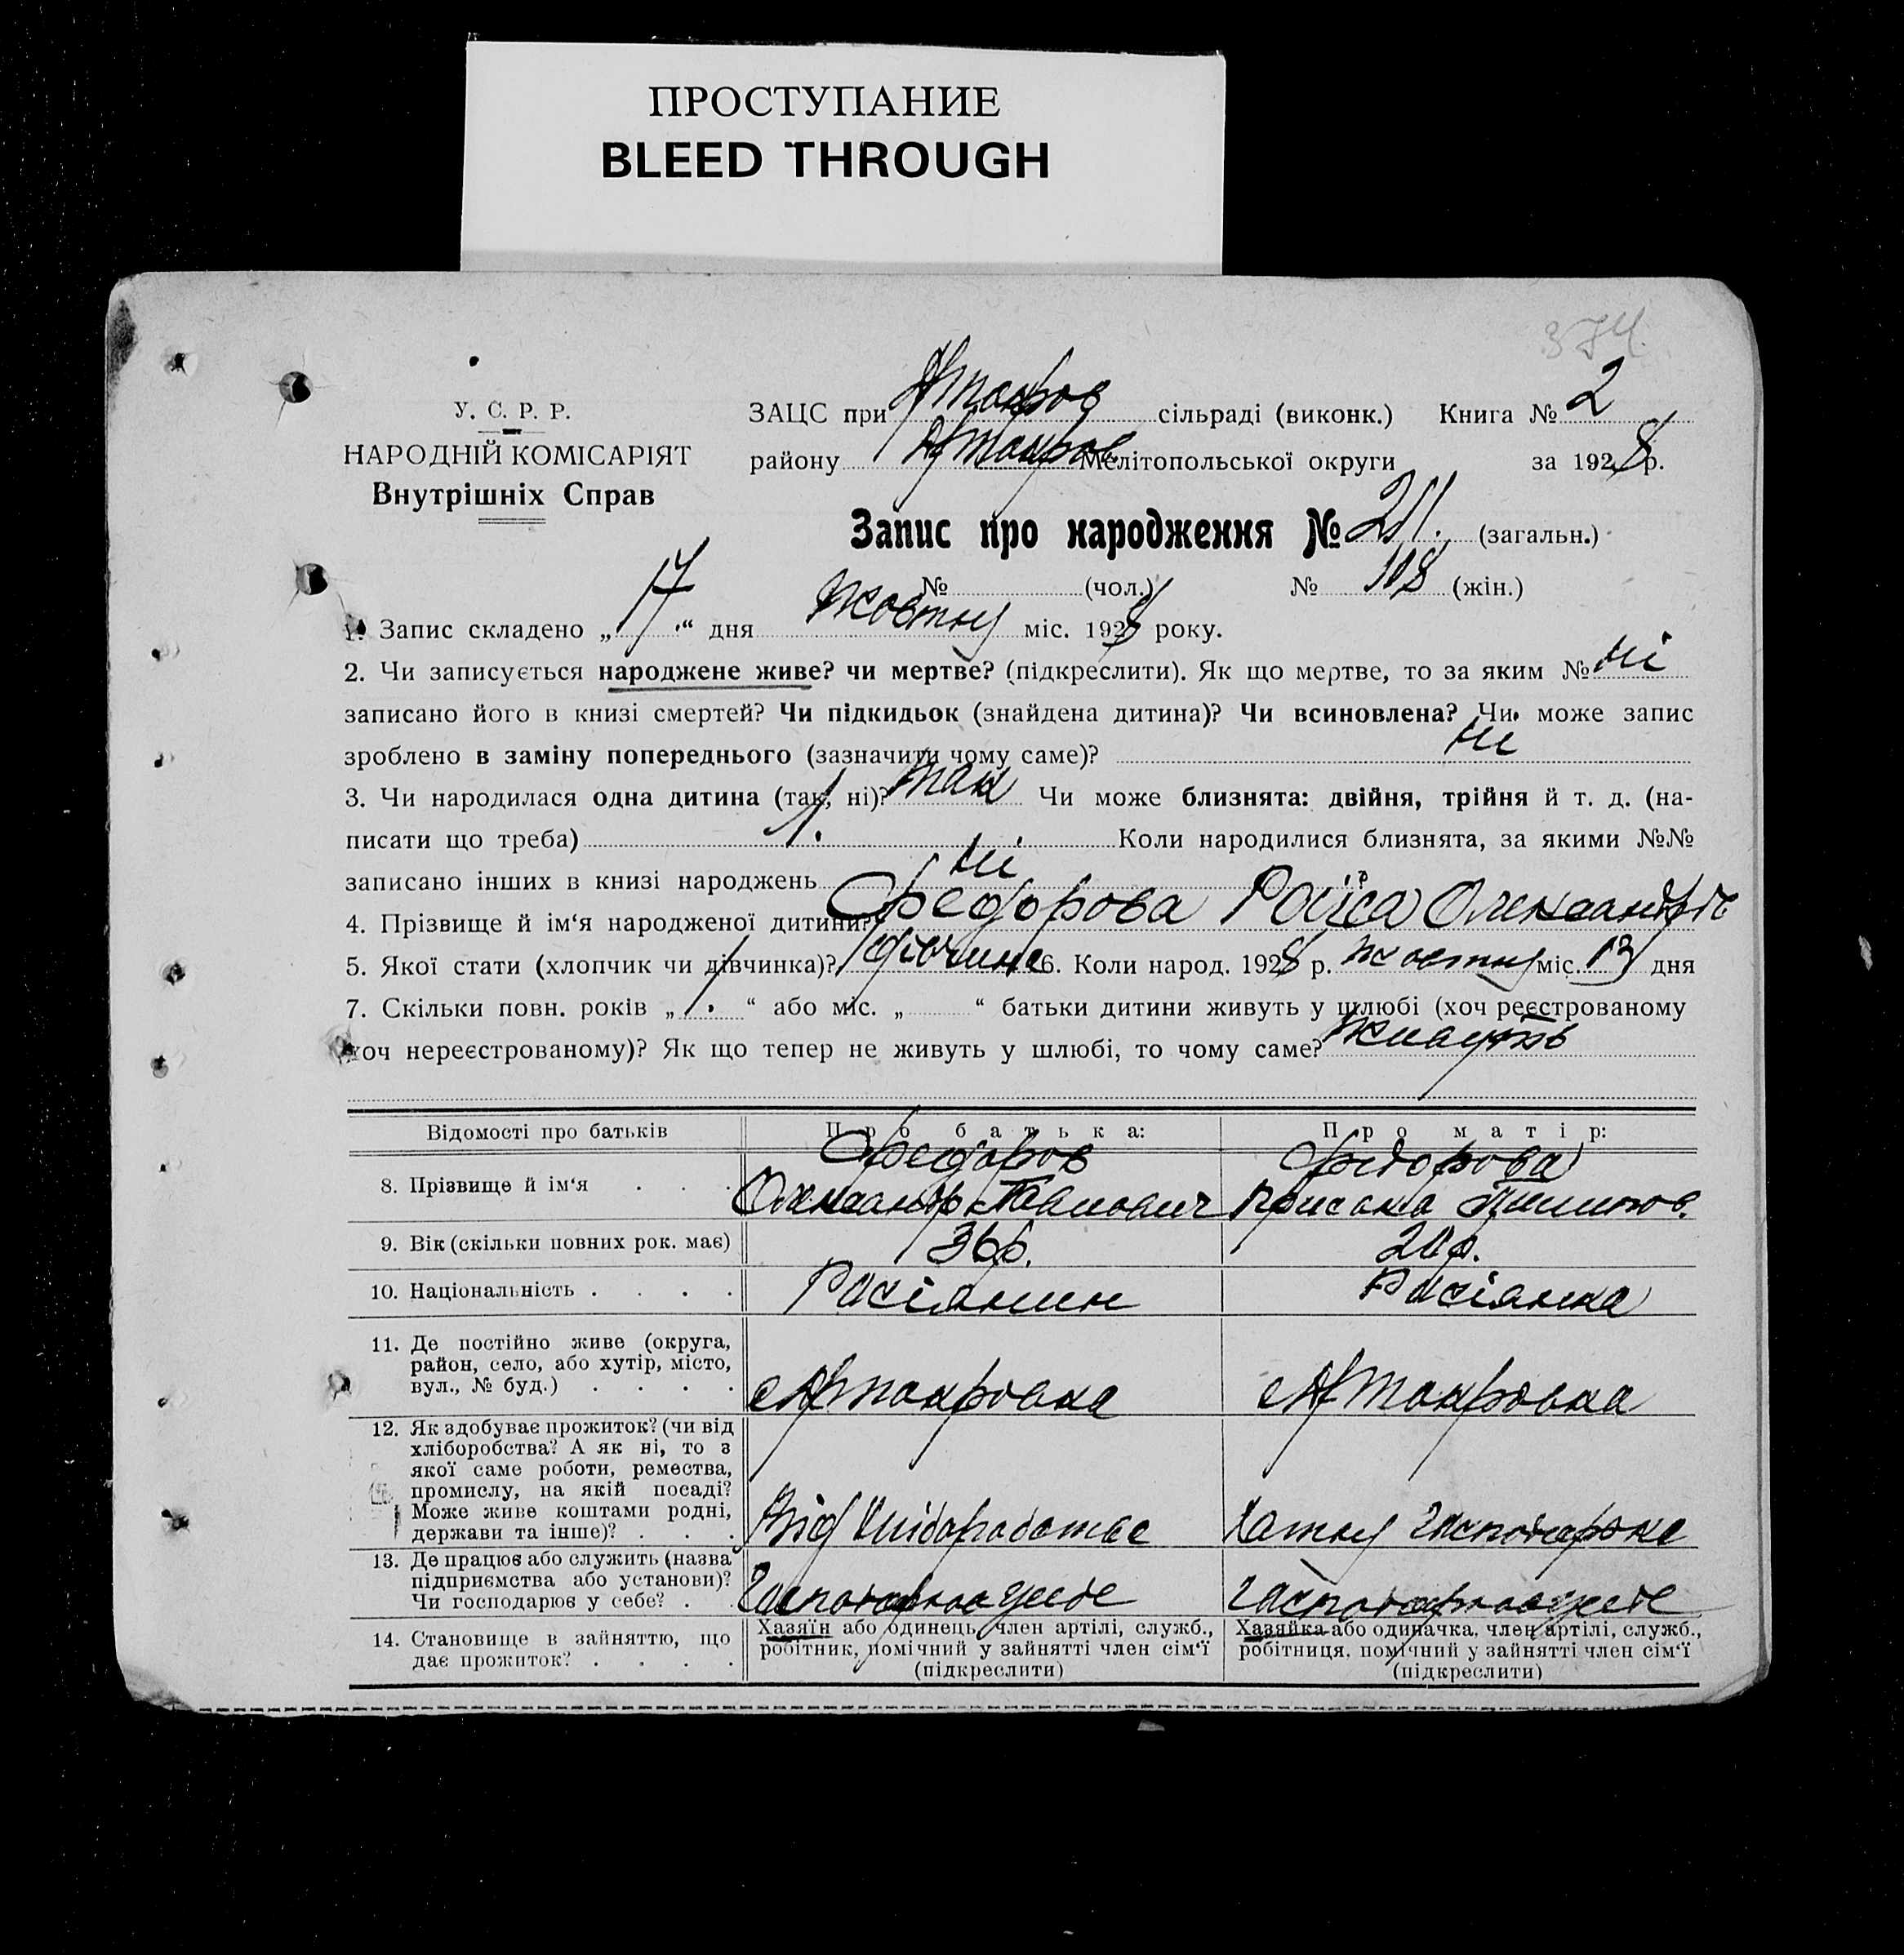 ПРОСТУПАНИЕ
BLEED THROUGH
374.
У. С. Р. Р.
НАРОДНІЙ КОМІСАРІЯТ
Внутрішніх Справ
ЗАЦС при сільраді (виконк.) Книга № 2
району Мелітопольської округи за 1928 р.
Запис про народження № 211. (загальн.)
№ (чол.) № 108 (жін.)
1. Запис складено „17“ дня жовтня міс. 1928 року.
2. Чи записується народжене живе? чи мертве? (підкреслити). Як що мертве, то за яким № ні
записано його в книзі смертей? Чи підкидьок (знайдена дитина)? Чи всиновлена? Чи може запис
зроблено в заміну попереднього (зазначити чому саме)? ні
3. Чи народилася одна дитина (так, ні)? так Чи може близнята: двійня, трійня й т. д. (на-
писати що треба) 1. Коли народилися близнята, за якими №№
записано інших в книзі народжень ні
4. Прізвище й ім‘я народженої дитини? Федорова Раїса Олександрів
5. Якої стати (хлопчик чи дівчинка)? дівчина 6. Коли народ. 1928 р. жовтня міс. 13 дня
7. Скільки повн. років „ 1. “ або міс. „ “ батьки дитини живуть у шлюбі (хоч реєстрованому
хоч нереєстрованому)? Як що тепер не живуть у шлюбі, то чому саме? живуть
Відомості про батьків Про батька: Про матір:
8. Прізвище й ім‘я Федоров Федорова
Олександр Павлович
9. Вік (скільки повних рок. має) 36 р. 20 р.
10. Національність Росіянин Росіянка
11. Де постійно живе (округа,
район, село, або хутір, місто,
вул., № буд.)
12. Як здобуває прожиток? (чи від
хліборобства? А як ні, то з
якої саме роботи, ремества,
промислу, на якій посаді?
Може живе коштами родні,
держави та інше)? Від Хатня
13. Де працює або служить (назва
підприємства або установи)?
Чи господарює у себе?
14. Становище в зайняттю, що
дає прожиток?
Хазяїн або одинець, член артілі, служб.,
робітник, помічний у зайнятті член сім‘ї
(підкреслити)
Хазяйка або одиначка, член артілі, служб.,
робітниця, помічний у зайнятті член сім‘ї
(підкреслити)